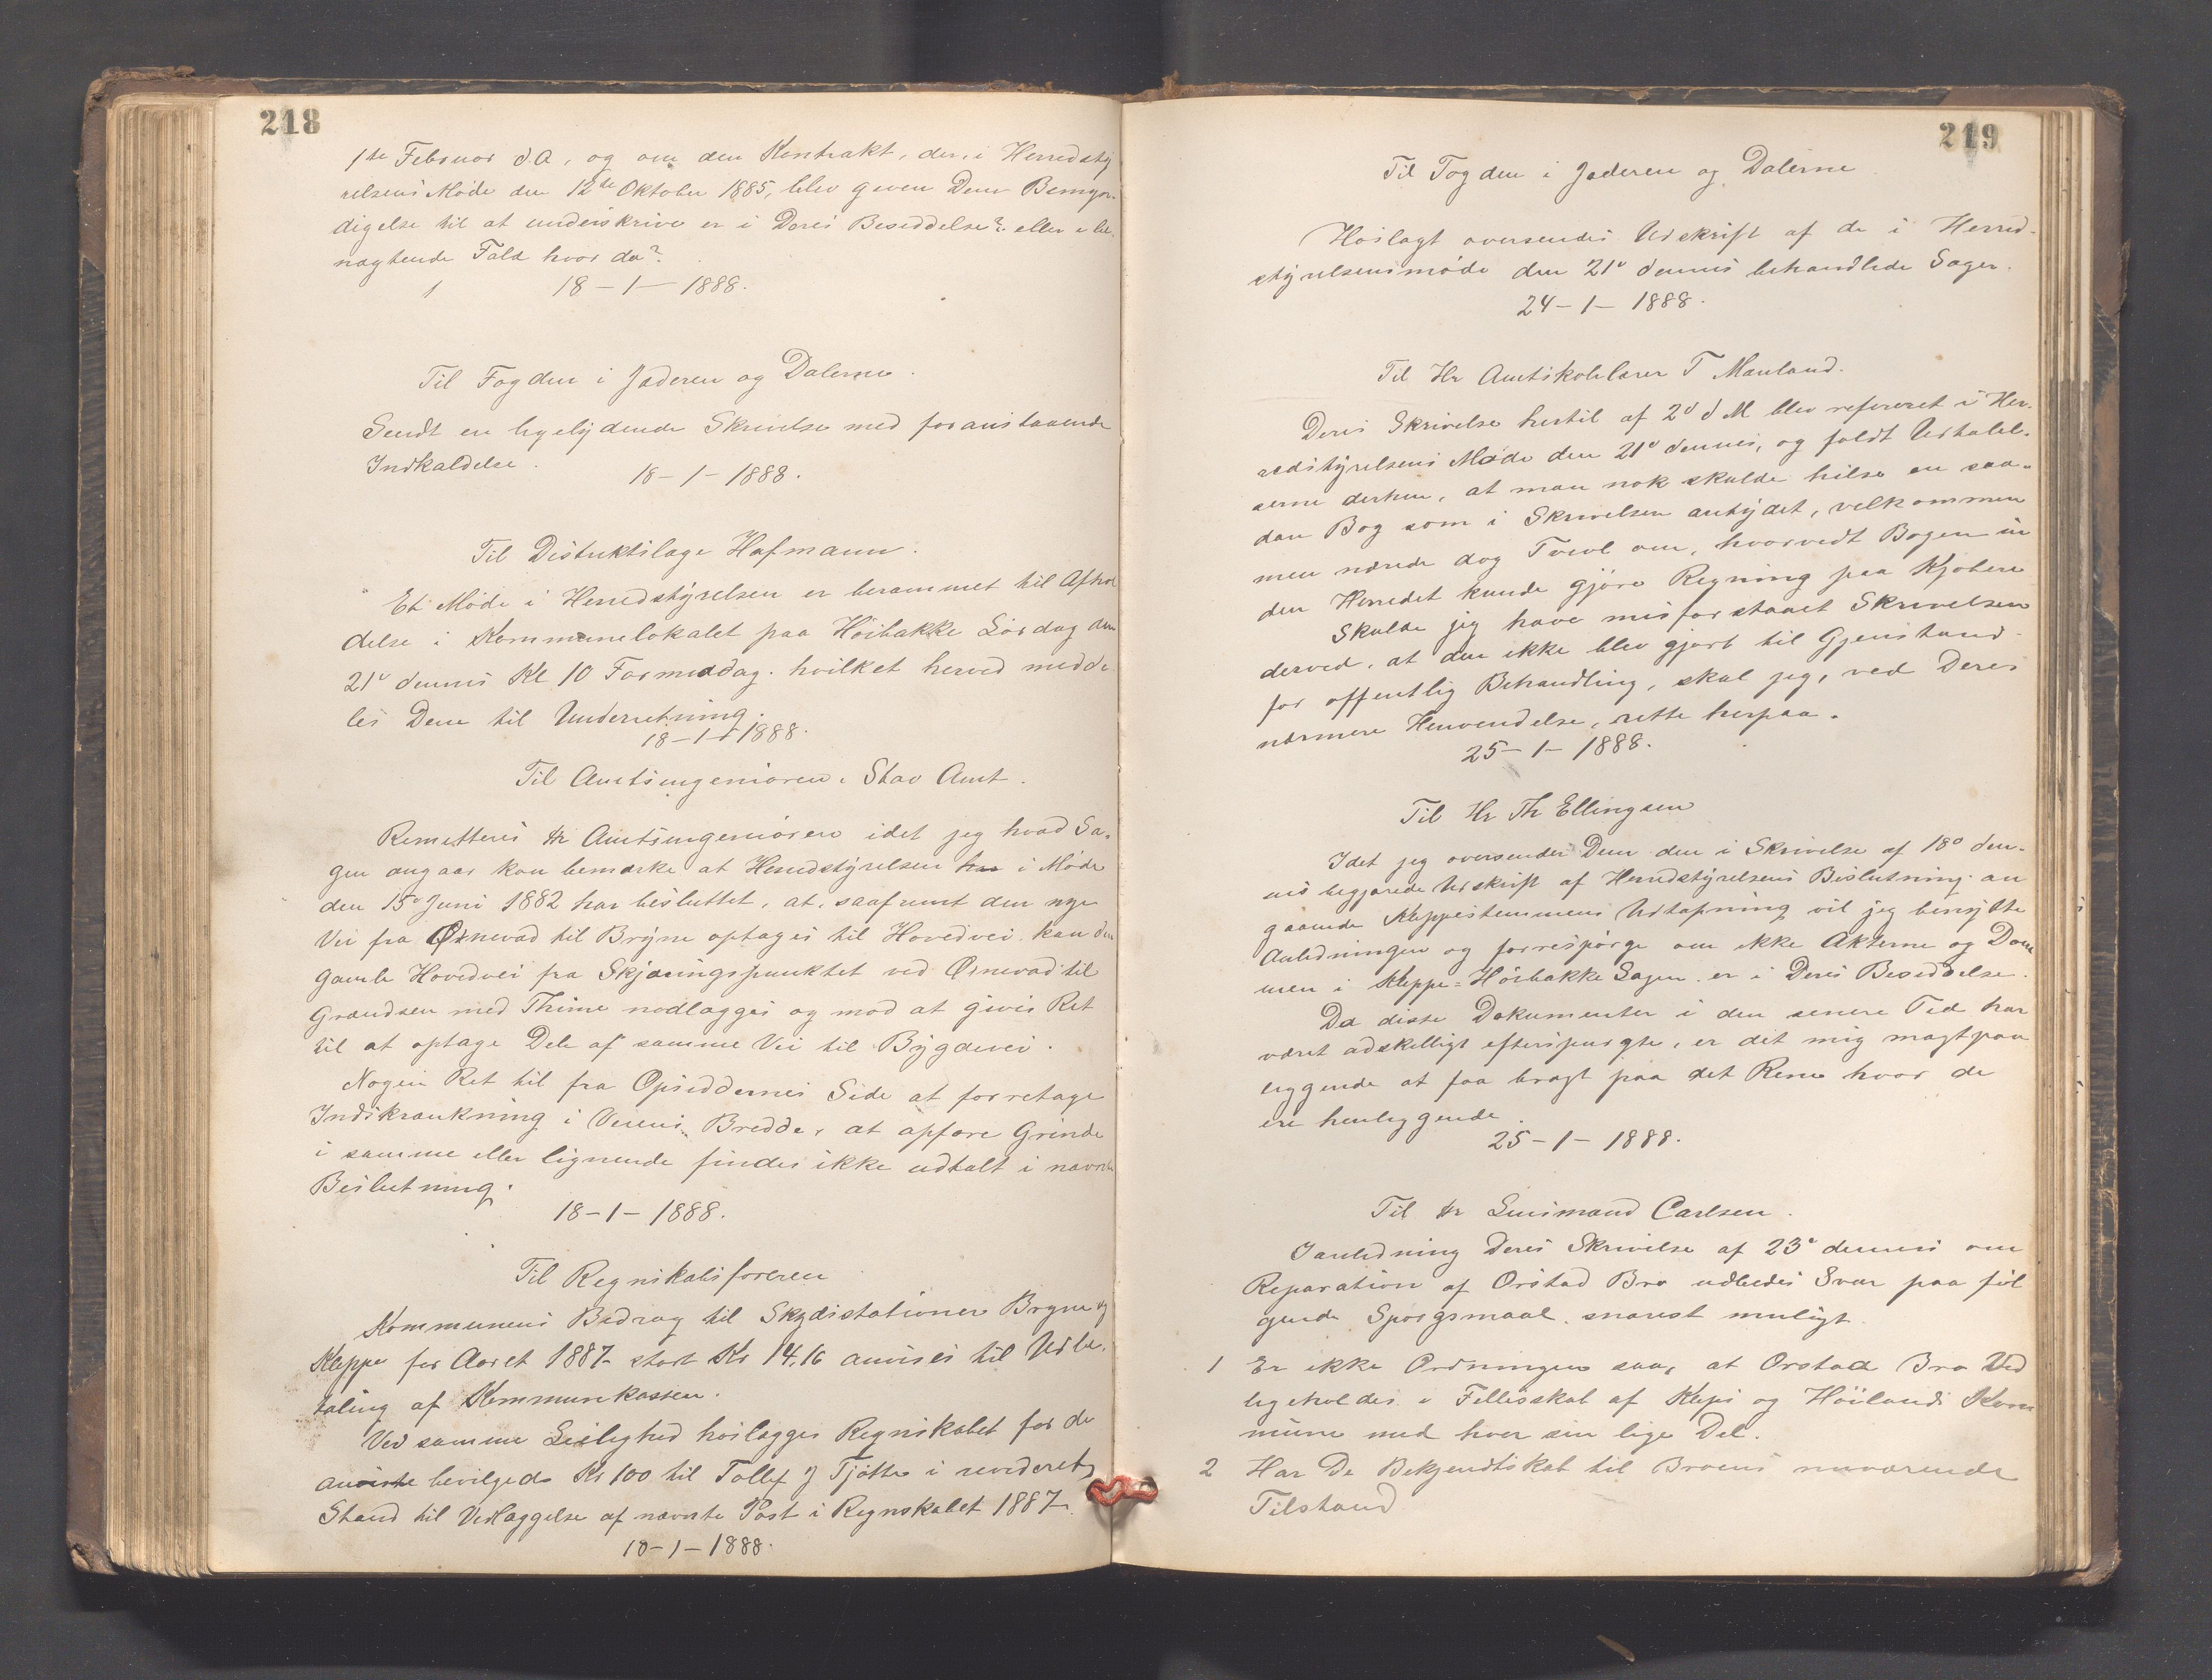 218
1ste Februar d.A, og om den Kontrakt, der, i Herredsty
relsens Møde den 12te Oktober 1885, blev given Dem Bemyn-
digelse til at underskrive er i Deres Besiddelse? eller i be-
nægtende Fald hvor da?
18-1-1888.
Til Fogden i Jæderen og Dalerne.
Sendt en ligelydende Skrivelse med foranstaaende
Indkaldelse.
18-1-1888.
Til Distriktslæge Hafmann.
Et Møde i Herredstyrelsen er berammet til Afhol
delse i Kommunelokalet paa Höibakke Lördag den
21de dennes Kl 10 Formiddag. hvilket herved medde
les Dem til Underretning.
18-1-1888.
Til Amtsingeniøren i Stav Amt.
Remitteres Hr Amtsingeniören idet jeg hvad Sa-
gen angaar kan bemærke at Herredstyrelsen har i Møde
den 15de Juni 1882 har besluttet, at, saafremt den nye
Vei fra Ørnevad til Bryne optages til Hovedvei kan den
gamle Hovedvei fra Skjæringspunktet ved Ørnevad til
Grændsen med Thime nedlægges og mod at gives Ret
til at optage Dele af samme Vei til Bygdevei.
Nogen Ret til fra Opsiddernes Side at forretage
Indskrænkning i Veiens Bredde, at opføre Grinde
i samme eller lignende findes ikke udtalt i nævnte
Beslutning.
18-1-1888.
Til Regnskabsføreren
Kommunens Bidrag til Skydsstationer Bryne og
Kleppe for Aaret 1887 stort Kr 14,16 anvises til Udbe-
taling af Kommunekassen.
Ved samme Leilighed hoslægges Regnskabet for de
anviste bevilgede Kr 100 til Tollef J Tjötta i revideret
Stand til Vedlæggelse af nævnte Post i Regnskabet 1887.
18-1-1888.
219
Til Fogden i Jæderen og Dalerne
Hoslagt oversendes Udskrift af de i Herred-
styrelsensmöde den 21de dennes behandlede Sager.
24-1-1888.
Til Hr Amtskolelærer T Mauland.
Deres Skrivelse hertil af 2d d M blev refereret i Her-
redstyrelsens Møde den 21de dennes, og faldt Udtalel-
serne derhen, at man nok skulde hilse en saa-
dan Bog som i Skrivelsen antydet, velkommen
men nærede dog Tvivl om, hvorvidt Bogen in
den Herredet kunde gjøre Regning paa Kjøbere
Skulde jeg have misforstaaet Skrivelsen
derved, at den ikke blev gjort til Gjenstand
for offentlig Behandling, skal jeg, ved Deres
nærmere Henvendelse, rette herpaa.
25-1-1888.
Til Hr Th Ellingsen
Idet jeg oversender Dem den i Skrivelse af 18de den-
nes begjærede Udskrift af Herredstyrelsens Beslutning an
gaaende Kleppestemmens Udtapning vil jeg benytte
Anledningen og forrespörge om ikke Akterne og Dom
men i Kleppe=Höibakke Sagen er i Deres Besiddelse.
Da disse Dokumenter i den senere Tid har
været adskilligt efterspurgte, er det mig magtpaa
liggende at faa bragt paa det Rene hvor de
ere henliggende.
25-1-1888.
Til Hr Lensmand Carlsen.
Ianledning Deres Skrivelse af 23de dennes om
Reparation af Orstad Bro udbedes Svar paa föl
gende Sporgsmaal snarest muligt.
1 Er ikke Ordningen saa, at Orstad Bro Ved
ligeholdes i Fellesskab af Kleps og Höilands Kom
mune med hver sin lige Del.
2 Har De Bekjendtskab til Broens nuværende
Tilstand